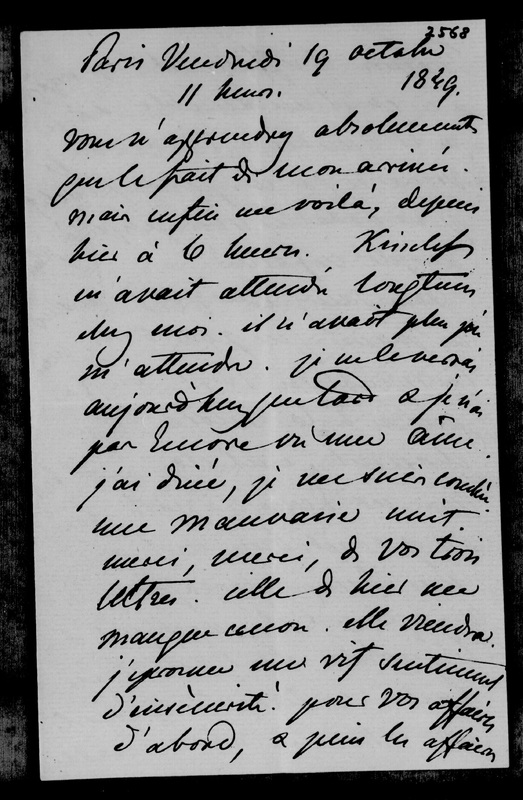 2568
Paris Vendredi 19 octobre
11 heures. 1849.
Vous n'apprendrez absolument
que le fait de mon arrivée.
mais enfin me voilà, depuis
hier à 6 heures. Kisseleff
m'avait attendu longtems
chez moi. il n'avait plus pu
m'attendre. je ne le verrai
aujourd'hui que tard & je n'ai
pas encore vu une âme.
j'ai diné, je me suis couchée
une mauvaise nuit.
merci, merci, de vos trois
lettres. celle de hier me
manque encore. elle viendra.
j'éprouve un vif sentiment
d'insécurité. pour vos affaires
d'abord, & puis les affaires